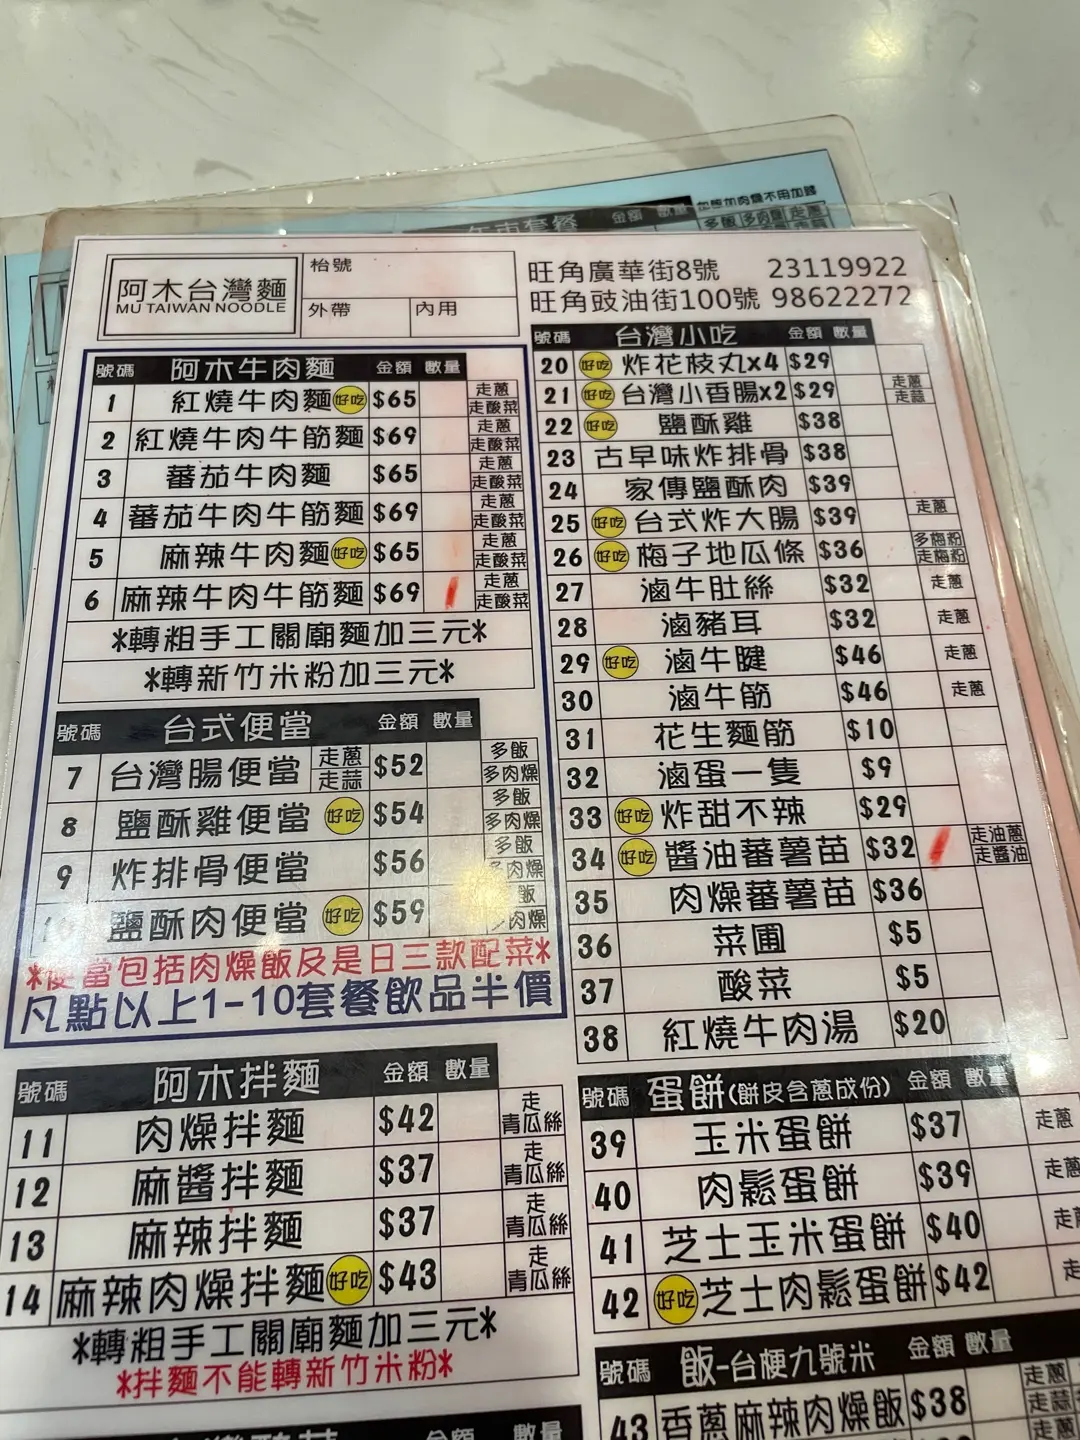 加飯加肉燥不用加錢
午市套餐 金額 數量 多飯 多肉燥 走蔥
阿木台灣麵
MU TAIWAN NOODLE
枱號
外帶 內用
旺角廣華街8號 23119922
旺角豉油街100號 98622272
號碼 阿木牛肉麵 金額 數量
1 紅燒牛肉麵 好吃 $65 走蔥 走酸菜
2 紅燒牛肉牛筋麵 $69 走蔥 走酸菜
3 蕃茄牛肉麵 $65 走蔥 走酸菜
4 蕃茄牛肉牛筋麵 $69 走蔥 走酸菜
5 麻辣牛肉麵 好吃 $65 走蔥 走酸菜
6 麻辣牛肉牛筋麵 $69 走蔥 走酸菜
*轉粗手工關廟麵加三元*
*轉新竹米粉加三元*
號碼 台式便當 金額 數量
7 台灣腸便當 走蔥 走蒜 $52 多飯 多肉燥
8 鹽酥雞便當 好吃 $54 多飯 多肉燥
9 炸排骨便當 $56 多飯 多肉燥
10 鹽酥肉便當 好吃 $59 飯 肉燥
*便當包括肉燥飯及是日三款配菜*
凡點以上1-10套餐飲品半價
號碼 阿木拌麵 金額 數量
11 肉燥拌麵 $42 走青瓜絲
12 麻醬拌麵 $37 走青瓜絲
13 麻辣拌麵 $37 走青瓜絲
14 麻辣肉燥拌麵 好吃 $43 走青瓜絲
*轉粗手工關廟麵加三元*
*拌麵不能轉新竹米粉*
金額 數量
號碼 台灣小吃 金額 數量
20 好吃 炸花枝丸x4 $29
21 好吃 台灣小香腸x2 $29 走蔥 走蒜
22 好吃 鹽酥雞 $38
23 古早味炸排骨 $38
24 家傳鹽酥肉 $39
25 好吃 台式炸大腸 $39 走蔥
26 好吃 梅子地瓜條 $36 多梅粉 走梅粉
27 滷牛肚絲 $32 走蔥
28 滷豬耳 $32 走蔥
29 好吃 滷牛腱 $46 走蔥
30 滷牛筋 $46 走蔥
31 花生麵筋 $10
32 滷蛋一隻 $9
33 好吃 炸甜不辣 $29
34 好吃 醬油蕃薯苗 $32 走油蔥 走醬油
35 肉燥蕃薯苗 $36
36 菜圃 $5
37 酸菜 $5
38 紅燒牛肉湯 $20
號碼 蛋餅(餅皮含蔥成份) 金額 數量
39 玉米蛋餅 $37 走蔥
40 肉鬆蛋餅 $39 走蔥
41 芝士玉米蛋餅 $40 走
42 好吃 芝士肉鬆蛋餅 $42 走
號碼 飯-台梗九號米 金額 數量
43 香蔥麻辣肉燥飯 $38 走蔥 走蒜
走蔥